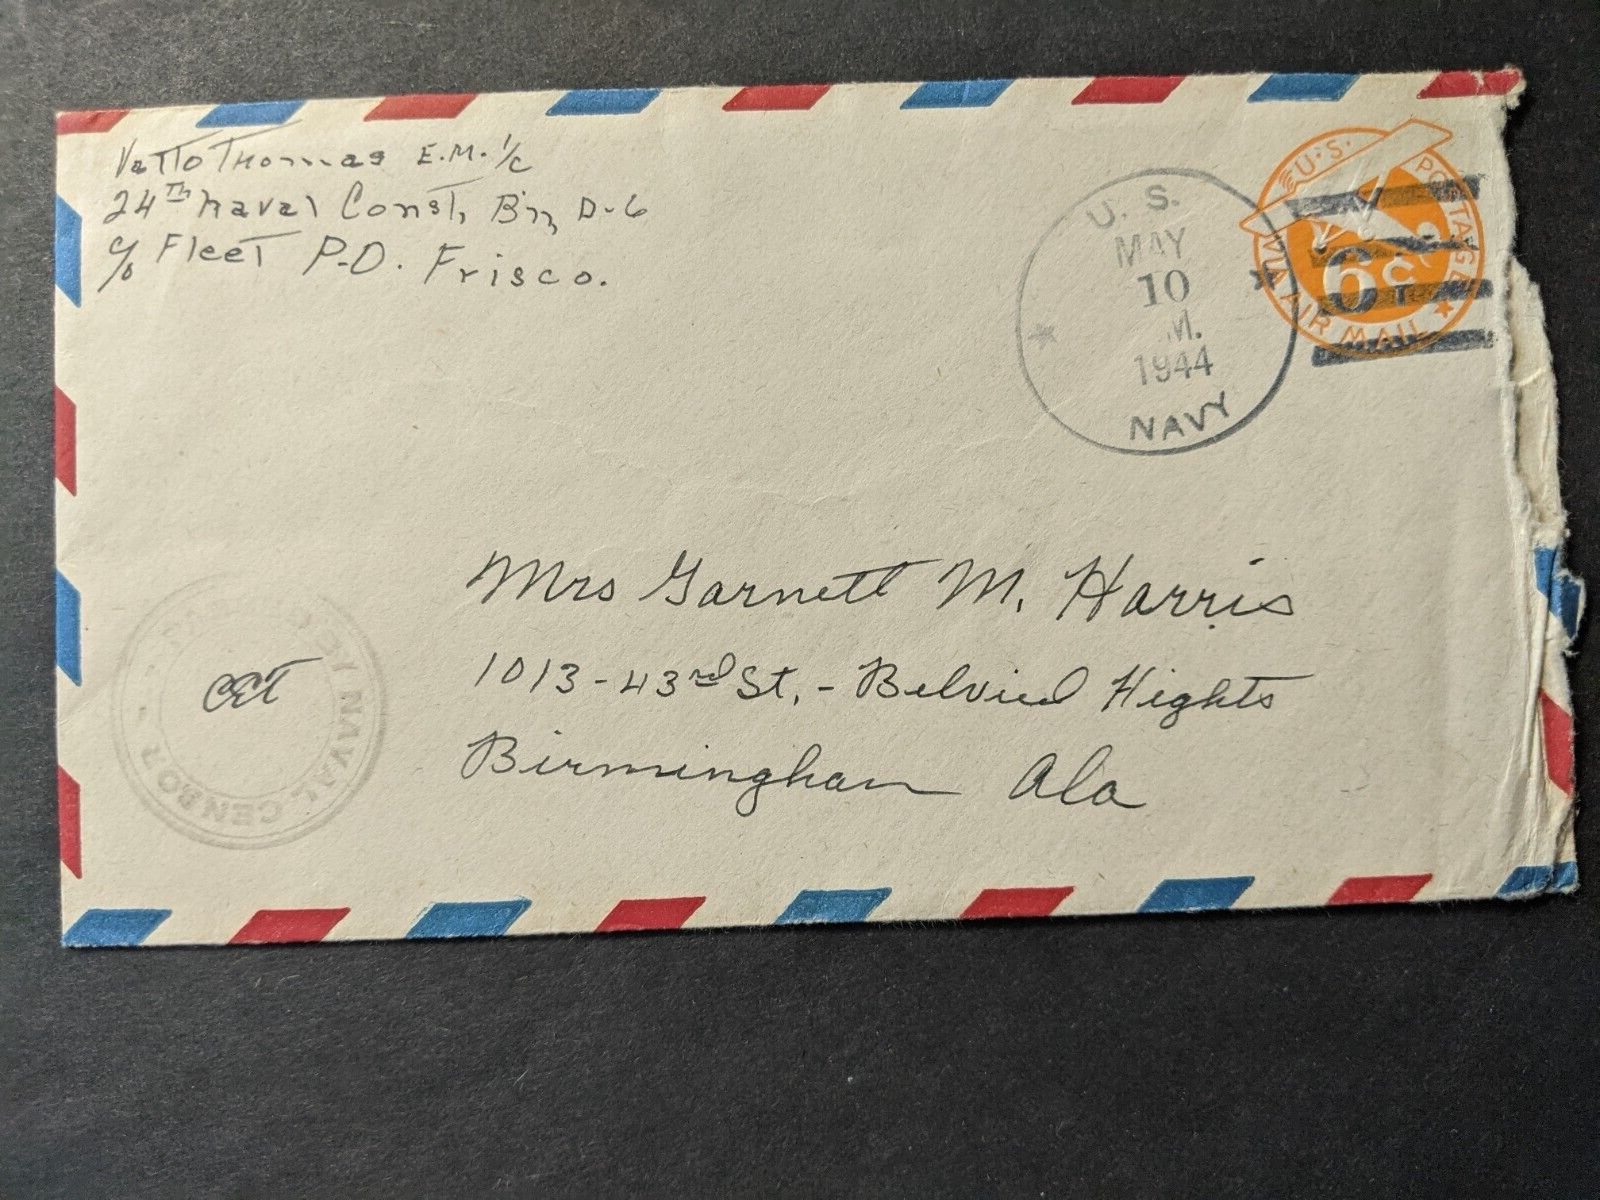 Vatto Thomas E.M. 1/c
24TH Naval Const, Bn, D-6
c/o Fleet P.O. Frisco.
U. S.
MAY
10
M.
1944
NAVY
U.S. POSTAGE
6c
VIA AIR MAIL
Mrs Garnett M. Harris
1013-43rd St, - Belvied Hights
Birmingham Ala
NAVAL CENSOR